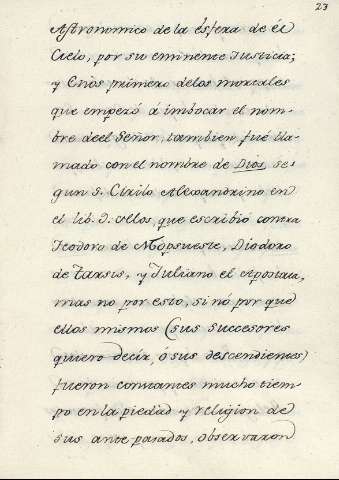 23
Astronomico de la ésfera de él
Cielo, por su eminente Justicia;
y Enós primero delos mortales
que empezó á imbocar el nom-
bre deel Señor, tambien fué lla-
mado con el nombre de Dios, se-
gun S. Cirilo Alexandrino en
el lib. J. ellos, que escribió contra
Teodoro de Mopsueste, Diodoro
de Tarsis, y Juliano el Apostata,
mas no por esto, si nó por que
ellos mismos (sus succesores
quiero decir, ó sus descendientes)
fueron constantes mucho tiem-
po en la piedad y religion de
sus ante pasados, observaron